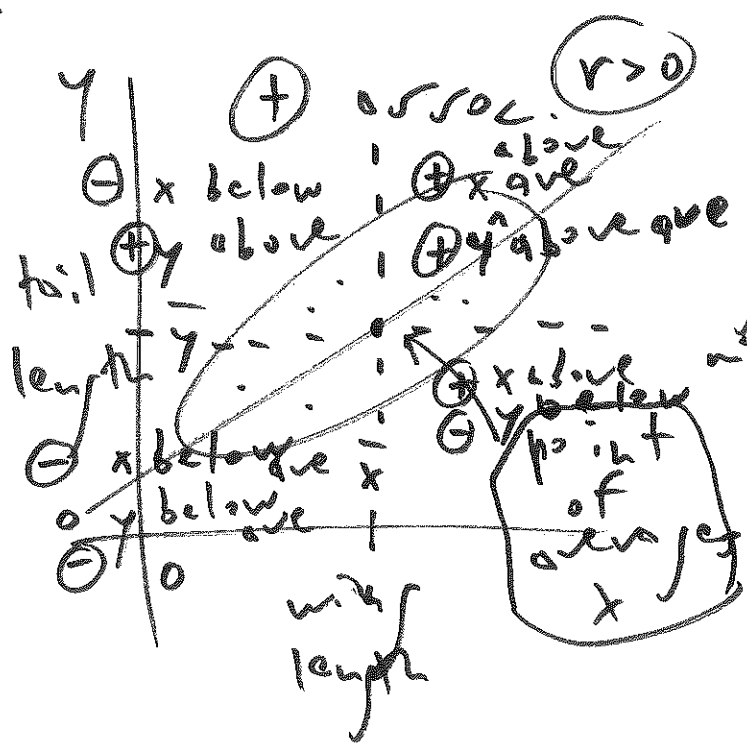 Y + assoc. r > 0
- x below
+ y above
+ x above ave
+ y above ave
tail length
ȳ
+ x above
- y below
- x below ave
- y below ave
x̄
0
0
point
of
averages
X
length